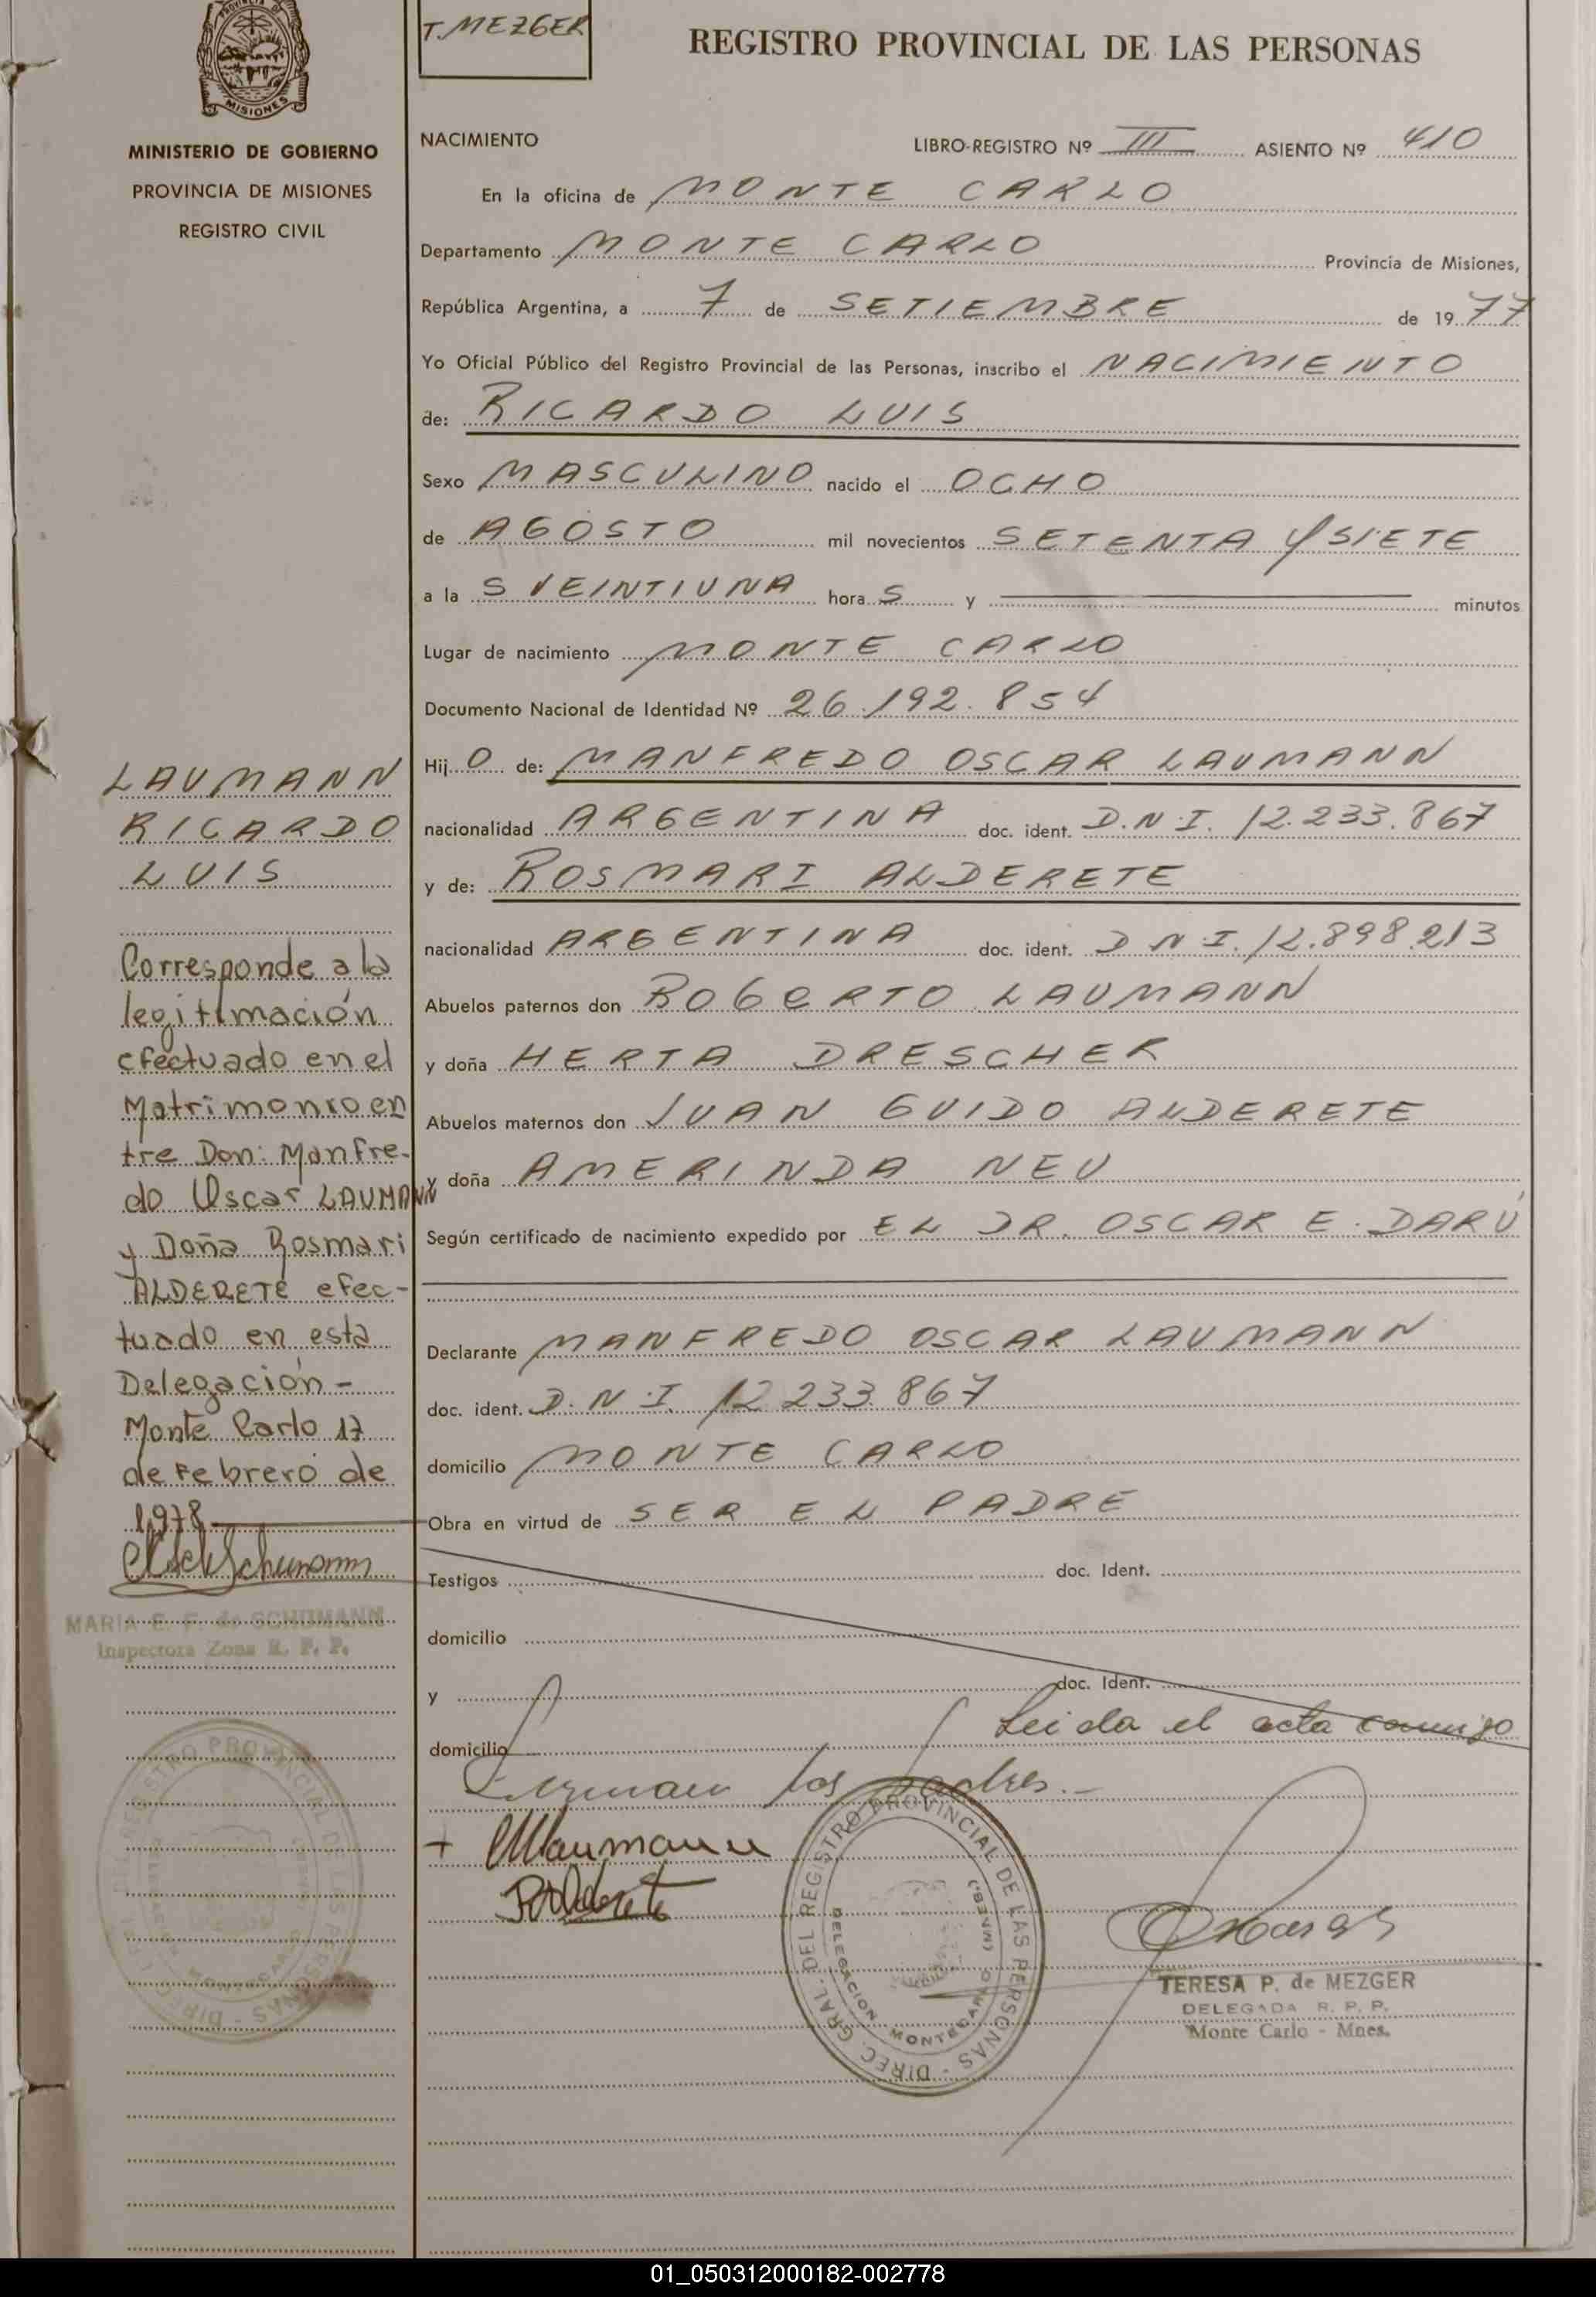 MISIONES
MINISTERIO DE GOBIERNO
PROVINCIA DE MISIONES
REGISTRO CIVIL
T. MEZGER
REGISTRO PROVINCIAL DE LAS PERSONAS
NACIMIENTO LIBRO-REGISTRO Nº III ASIENTO Nº 410
En la oficina de MONTE CARLO
Departamento MONTE CARLO Provincia de Misiones,
República Argentina, a 7 de SETIEMBRE de 1977
Yo Oficial Público del Registro Provincial de las Personas, inscribo el NACIMIENTO
de: RICARDO LUIS
Sexo MASCULINO nacido el OCHO
de AGOSTO mil novecientos SETENTA Y SIETE
a la S VEINTIUNA hora S y minutos
Lugar de nacimiento MONTE CARLO
Documento Nacional de Identidad Nº 26.192.854
Hij O de: MANFREDO OSCAR LAUMANN
nacionalidad ARGENTINA doc. ident. D.N.I. 12.233.867
y de: ROSMARI ALDERETE
nacionalidad ARGENTINA doc. ident. D N I. 12.898.213
Abuelos paternos don ROBERTO LAUMANN
y doña HERTA DRESCHER
Abuelos maternos don JUAN GUIDO ALDERETE
y doña AMERINDA NEU
Según certificado de nacimiento expedido por EL DR. OSCAR E. DARÚ
Declarante MANFREDO OSCAR LAUMANN
doc. ident. D.N.I. 12.233.867
domicilio MONTE CARLO
Obra en virtud de SER EL PADRE
Testigos doc. Ident.
domicilio
y doc. Ident.
domicilio
Leida el acta conmigo
Firman los padres.-
+ MLaumann
RAlderete
DIREC. GRAL. DEL REGISTRO PROVINCIAL DE LAS PERSONAS
DELEGACION MONTECARLO (MNES.)
TERESA P. de MEZGER
DELEGADA R. P. P.
Monte Carlo - Mnes.
LAUMANN
RICARDO
LUIS
Corresponde a la
legitimación
efectuado en el
Matrimonio en
tre Don: Manfre-
do Oscar LAUMANN
y Doña Rosmari
ALDERETE efec-
tuado en esta
Delegación-
Monte Carlo 17
de Febrero de
1978
MARIA E. F. de SCHUMANN
Inspectora Zona R. P. P.
DIREC. GRAL. DEL REGISTRO PROVINCIAL DE LAS PERSONAS
01_050312000182-002778